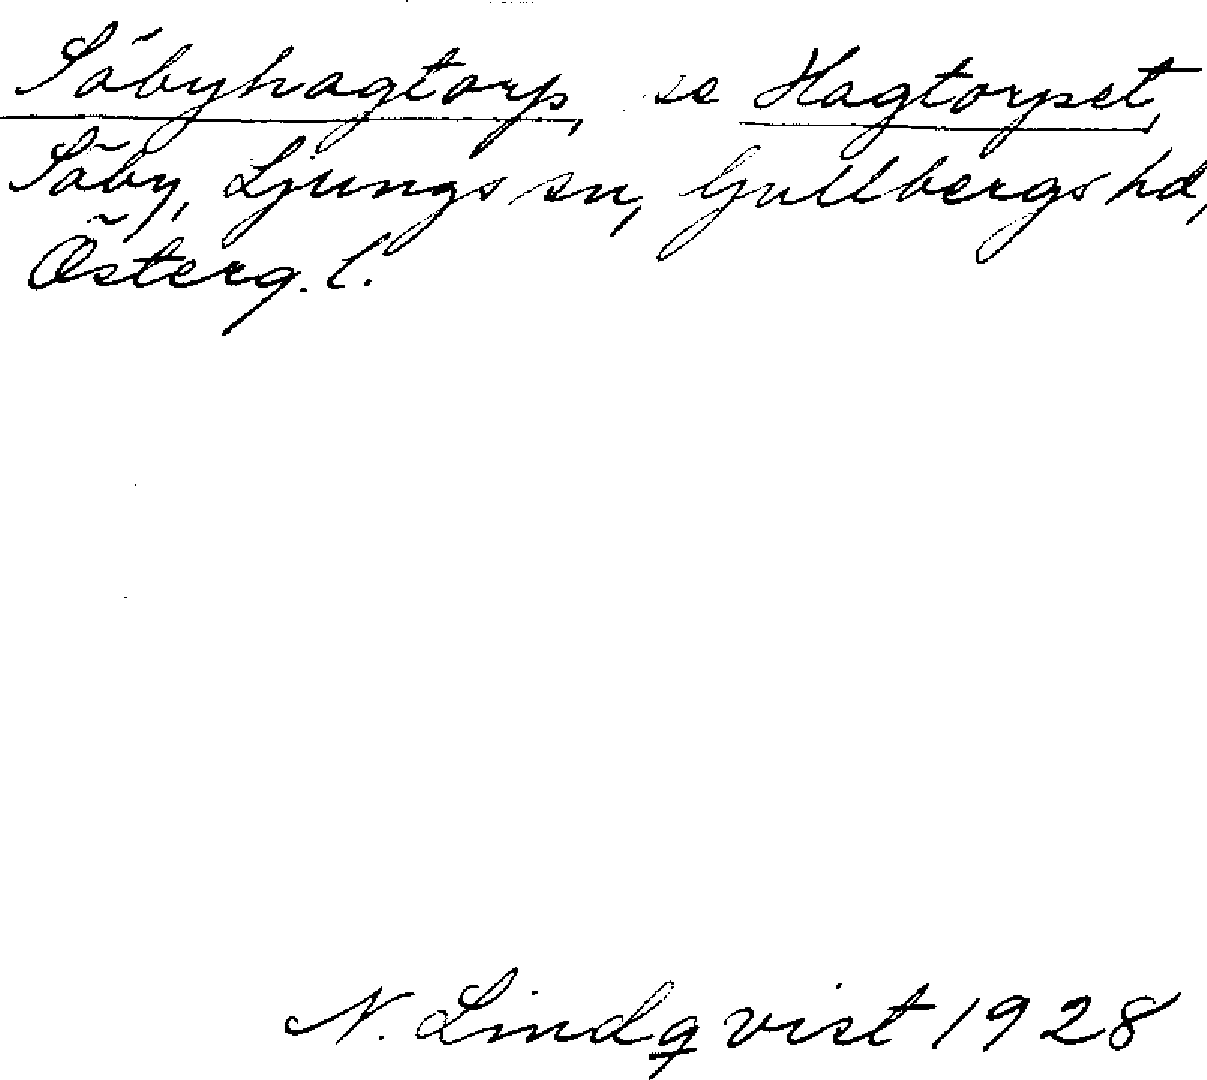 Säbyhagtorp, se Hagtorpet,
Säby, Ljungs sn, Gullbergs hd,
Österg. l.
N. Lindqvist 1928